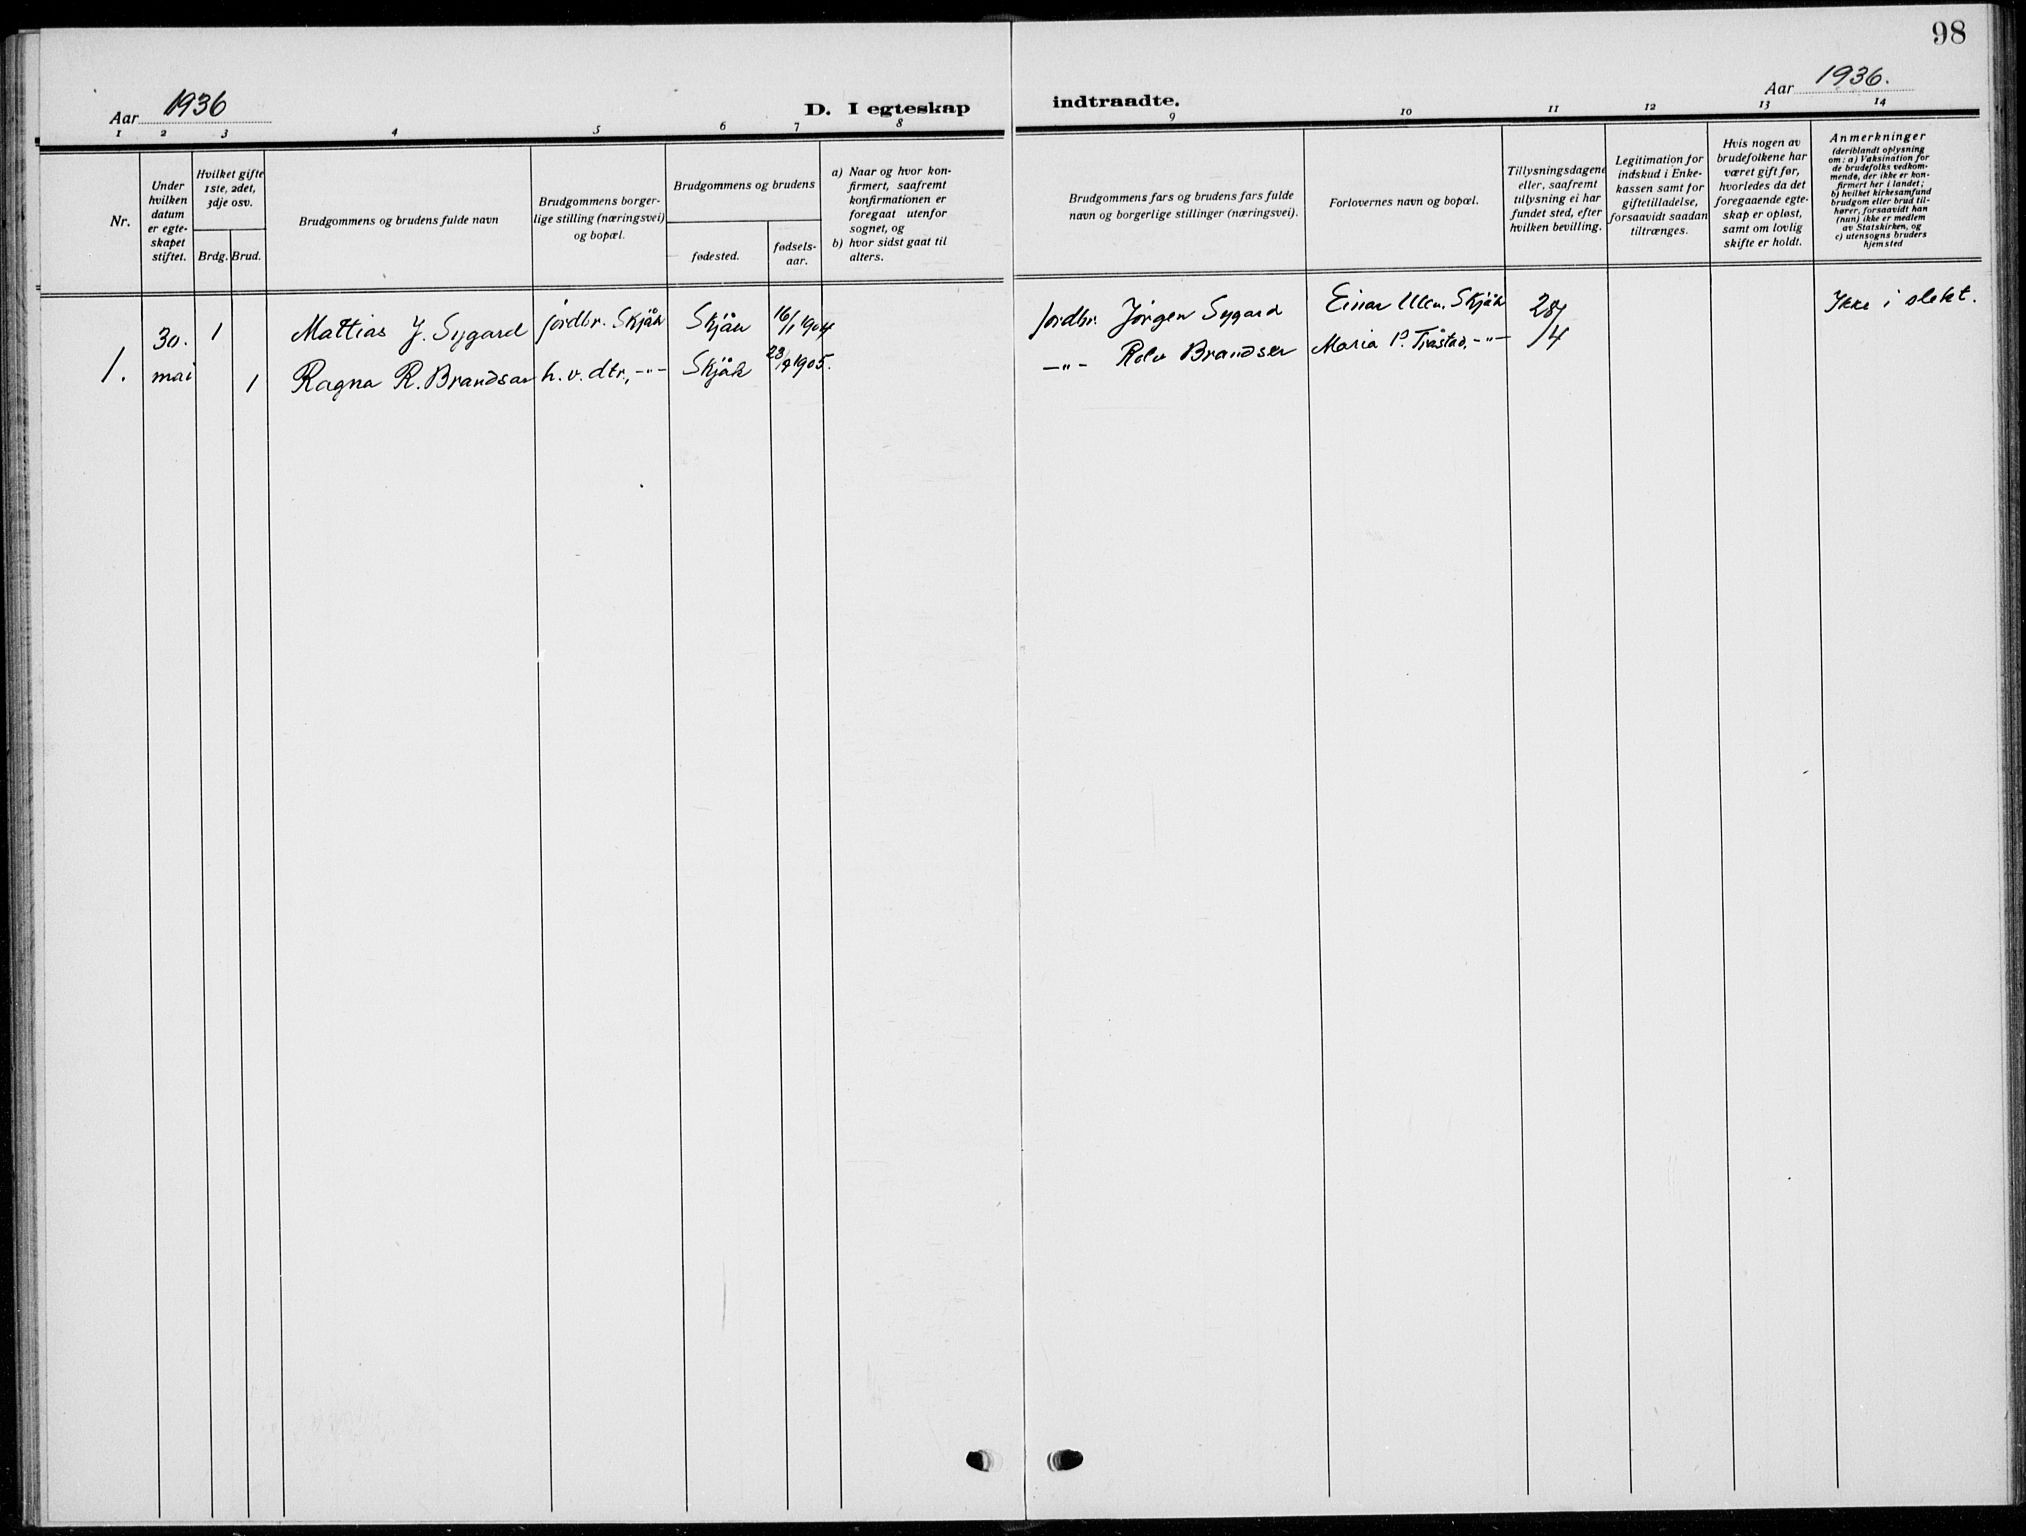 98
Aar 1936
D. I egteskap
indtraadte.
Aar 1936.
1 2 3 4 5 6 7 8
9 10 11 12 13 14
Nr.
Under
hvilken
datum
er egte-
skapet
stiftet.
Hvilket gifte
1ste, 2det,
3dje osv.
Brdg. Brud.
Brudgommens og brudens fulde navn
Brudgommens borger-
lige stilling (næringsvei)
og bopæl.
Brudgommens og brudens
fødested.
fødsels-
aar.
a) Naar og hvor kon-
firmert, saafremt
konfirmationen er
foregaat utenfor
sognet, og
b) hvor sidst gaat til
alters.
Brudgommens fars og brudens fars fulde
navn og borgerlige stillinger (næringsvei).
Forlovernes navn og bopæl.
Tillysningsdagene
eller, saafremt
tillysning ei har
fundet sted, efter
hvilken bevilling.
Legitimation for
indskud i Enke-
kassen samt for
giftetilladelse,
forsaavidt saadan
tiltrænges.
Hvis nogen av
brudefolkene har
været gift før,
hvorledes da det
foregaaende egte-
skap er opløst,
samt om lovlig
skifte er holdt.
Anmerkninger
(deriblandt oplysning
om: a) Vaksination for
de brudefolks vedkom-
mende, der ikke er kon-
firmert her i landet;
b) hvilket kirkesamfund
brudgom eller brud til-
hører, forsaavidt han
(hun) ikke er medlem
av Statskirken, og
c) utensogns bruders
hjemsted
1.
30.
mai
1
1
Mattias J. Sygard
Ragna R. Brandsar
jordbr. Skjåk
h. v. dtr., -"-
Skjåk
Skjåk
16/1 1904
23/9 1905.
Jordbr. Jørgen Sygard
-"- Rolv Brandsar
Einar Ullen. Skjåk
Maria P. Tråstad, -"-
28/
/4
Ikke i slekt.